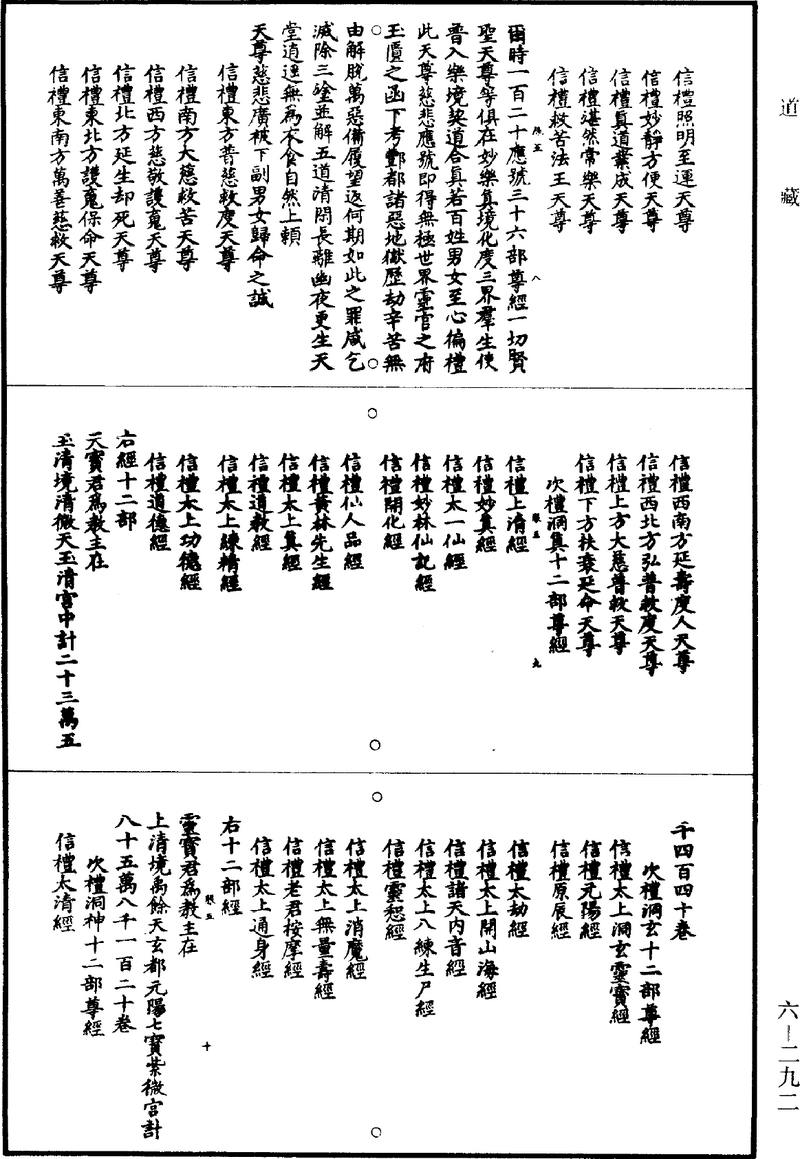 道藏
信禮照明至運天尊
信禮妙靜方便天尊
信禮真道業成天尊
信禮湛然常樂天尊
信禮救苦法王天尊
爾時一百二十應號三十六部尊經一切賢
聖天尊等俱在妙樂真境化度三界羣生使
普入樂境契道合真若百姓男女至心徧禮
此天尊慈悲應號即得無極世界靈官之府
玉匱之函下考酆都諸惡地獄歷劫辛苦無
由解脫萬惡備履望返何期如此之罪咸乞
滅除三塗並解五道清閑長離幽夜更生天
堂逍遥無為衣食自然上賴
天尊慈悲廣被下副男女歸命之誠
信禮東方普慈救度天尊
信禮南方大慈救苦天尊
信禮西方慈敬護䰟天尊
信禮北方延生却死天尊
信禮東北方護䰟保命天尊
信禮東南方萬善慈救天尊
信禮西南方延壽度人天尊
信禮西北方弘普救度天尊
信禮上方大慈普救天尊
信禮下方扶衰延命天尊
次禮洞真十二部尊經
九
信禮上清經
信禮妙真經
信禮太一仙經
信禮妙林仙記經
信禮開化經
信禮仙人品經
信禮黃林先生經
信禮太上真經
信禮道教經
信禮太上練精經
信禮太上功德經
信禮道德經
右經十二部
天寶君為教主在
玉清境清微天玉清宫中計二十三萬五
千四百四十卷
次禮洞玄十二部尊經
信禮太上洞玄靈寶經
信禮元陽經
信禮原辰經
信禮大劫經
信禮太上開山海經
信禮諸天内音經
信禮太上八練生尸經
信禮靈恕經
信禮太上消魔經
信禮太上無量壽經
信禮老君按摩經
信禮太上通身經
右十二部經
十
靈寶君為教主在
上清境禹餘天玄都元陽七寶紫微宫計
八十五萬八千一百二十卷
次禮洞神十二部尊經
信禮太清經
六—二九二